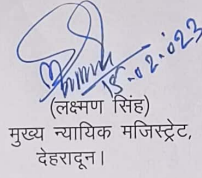 15.02.023
(लक्ष्मण सिंह)
मुख्य न्यायिक मजिस्ट्रेट,
देहरादून।